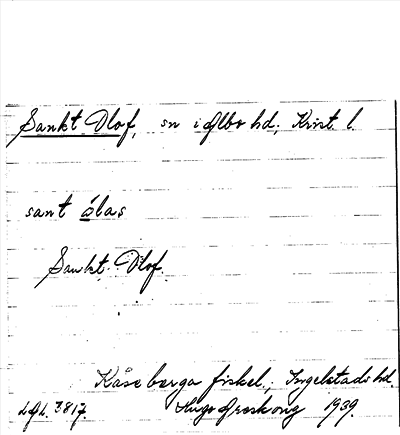 Sankt Olof, sn i Albo hd, Krist. l.
sant òlas
Sankt Olof.
Kåseberga fiskel., Ingelstads hd.
LAL. 3817. Hugo Areskoug 1939.